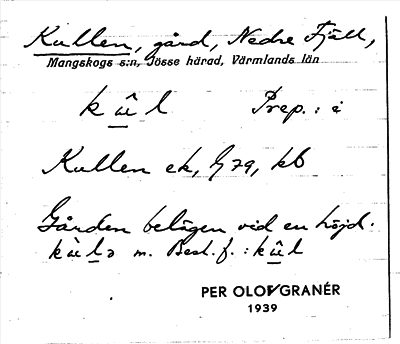 Kullen, gård, Nedre Fjäll,
Mangskogs s:n, Jösse härad, Värmlands län
kûl Prep.: i
Kullen ek, G79, kb
Gården belägen vid en höjd.
kùlə m. Best. f.: kûl
PER OLOF GRANÉR
1939